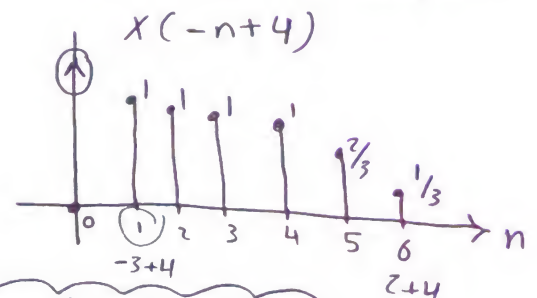 X(-n+4)
1 1 1 1 2/3 1/3
0 1 2 3 4 5 6 n
-3+4 2+4